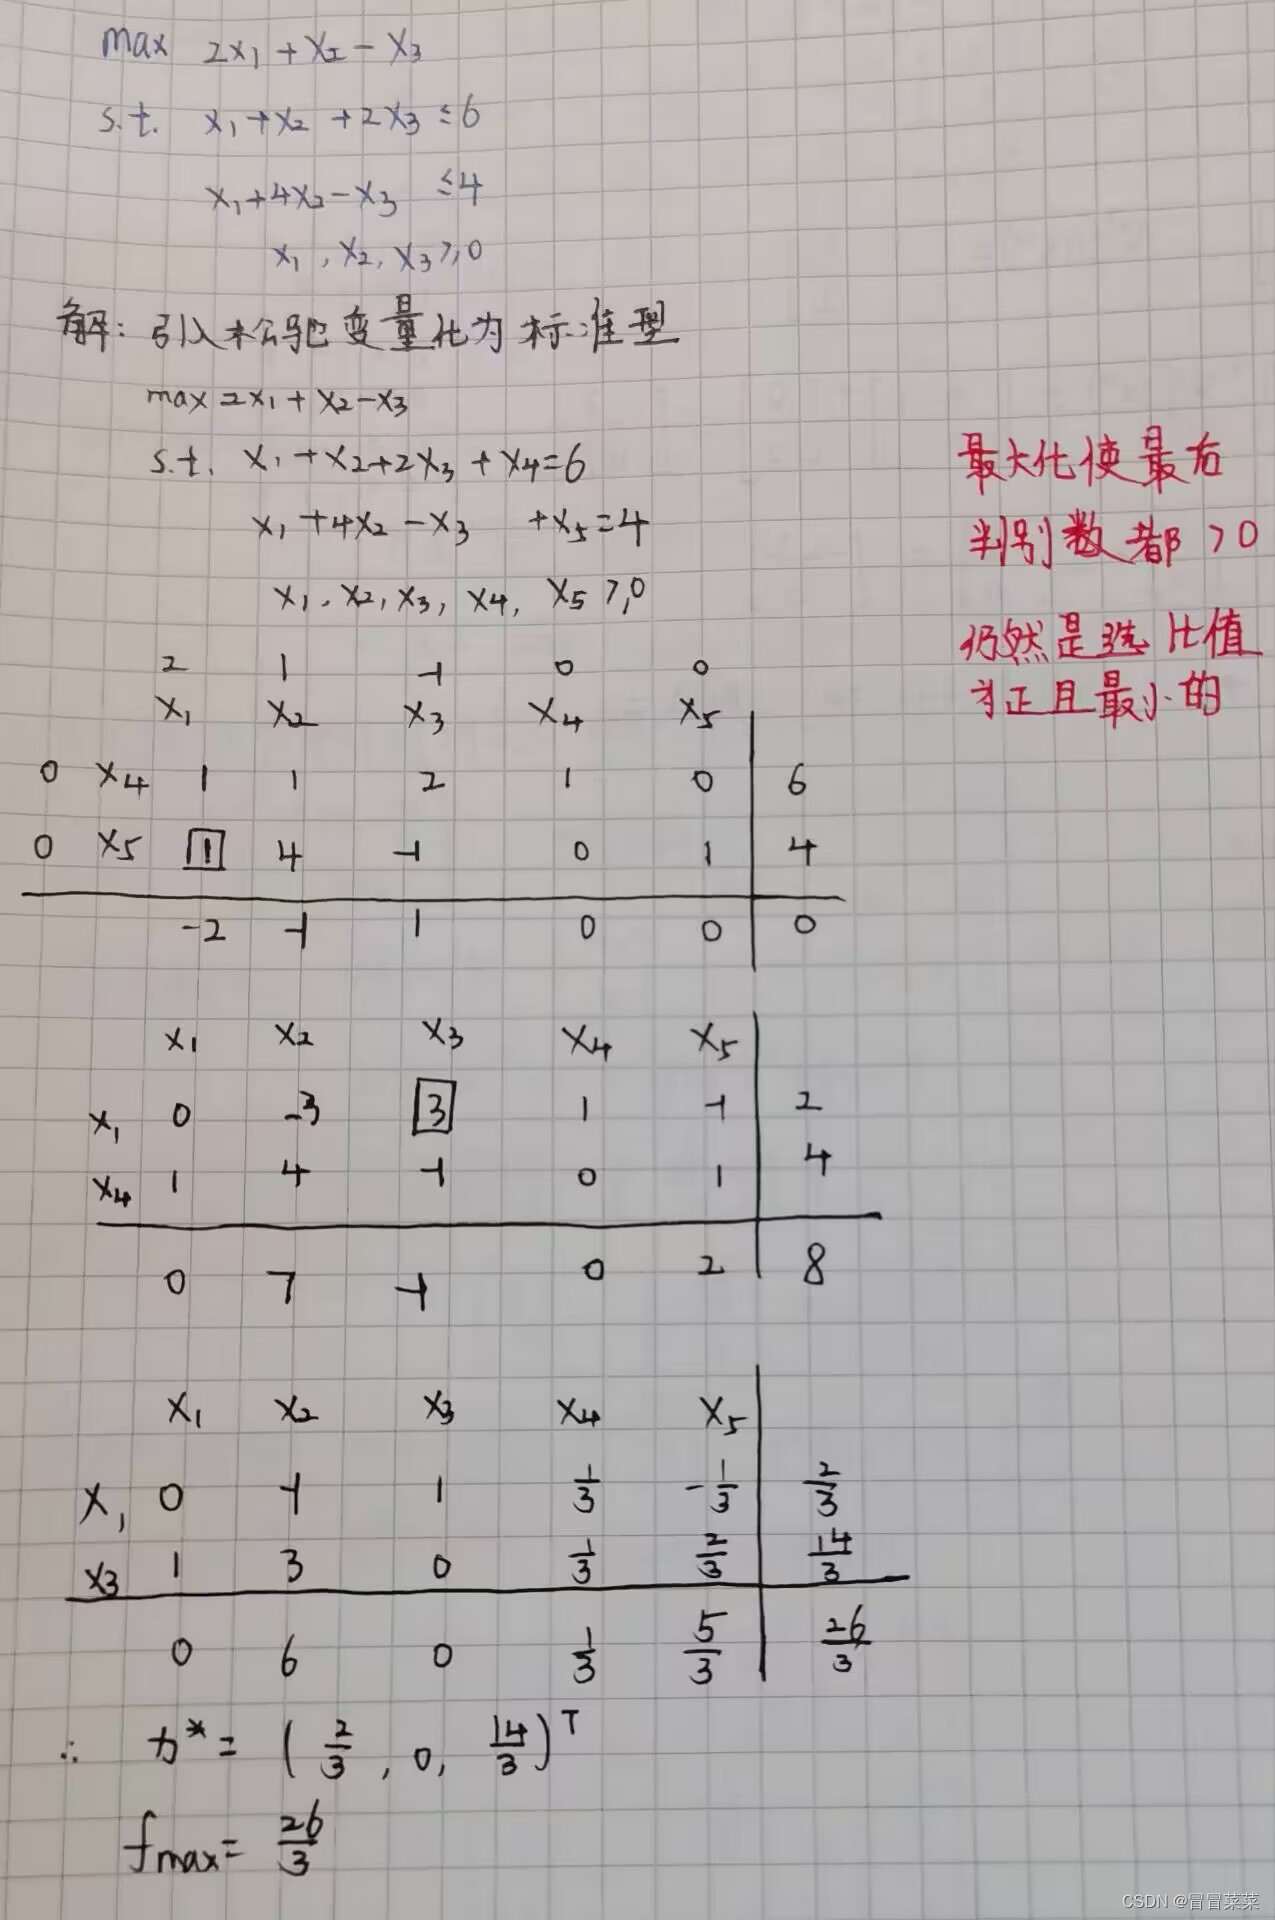 max 2x₁+x₂-x₃
s.t. x₁+x₂+2x₃≤6
x₁+4x₂-x₃ ≤4
x₁,x₂,x₃≥0
解:引入松弛变量化为标准型
max 2x₁+x₂-x₃
s.t. x₁+x₂+2x₃+x₄=6
x₁+4x₂-x₃ +x₅=4
x₁,x₂,x₃,x₄,x₅≥0
最大化使最后
判别数都>0
仍然是选比值
为正且最小的
2 1 -1 0 0
x₁ x₂ x₃ x₄ x₅
0 x₄ 1 1 2 1 0 6
0 x₅ 1 4 -1 0 1 4
-2 -1 1 0 0 0
x₁ x₂ x₃ x₄ x₅
x₁ 0 -3 3 1 -1 2
x₄ 1 4 -1 0 1 4
0 7 -1 0 2 8
x₁ x₂ x₃ x₄ x₅
x₁ 0 -1 1 1/3 -1/3 2/3
x₃ 1 3 0 1/3 2/3 14/3
0 6 0 1/3 5/3 26/3
∴ x*=(2/3,0,14/3)ᵀ
fmax=26/3
CSDN @冒冒菜菜